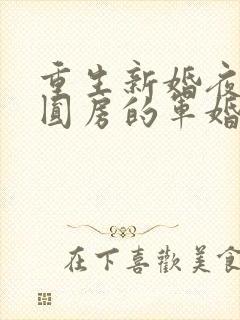 重生新婚夜
圆房的军婚
在下喜歡美食